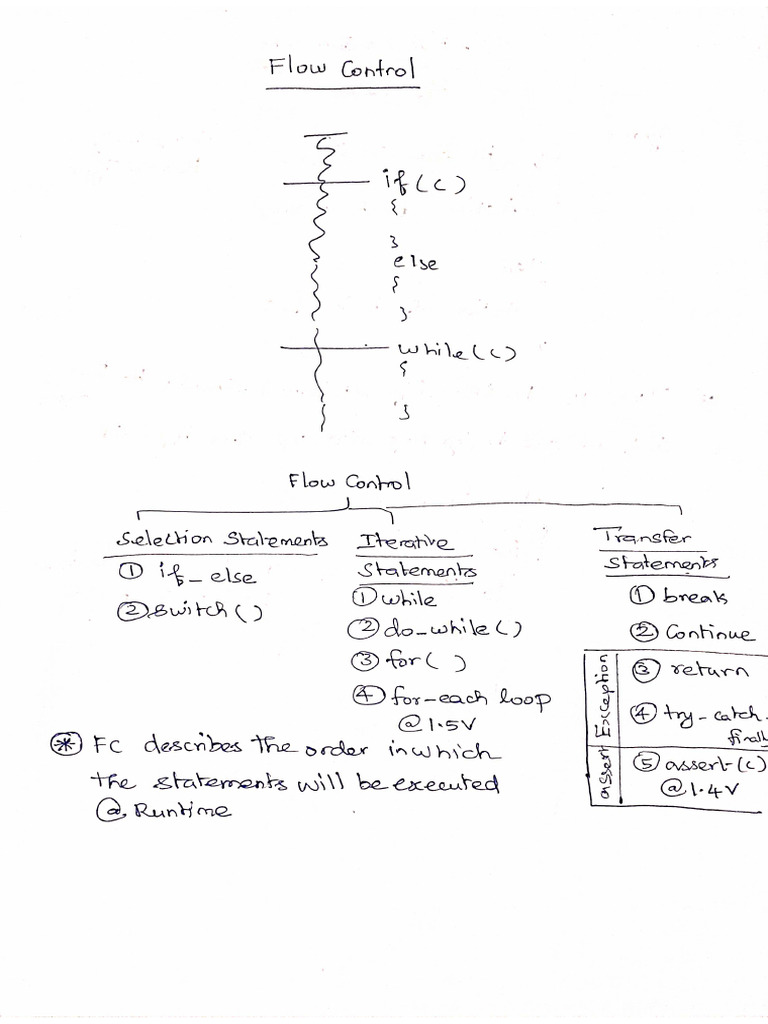 Flow Control
if(c)
{
}
else
{
}
while(c)
{
}
Flow Control
Selection Statements
① if_else
② switch()
Iterative
Statements
① while
② do_while()
③ for( )
④ for-each loop
@ 1.5V
Transfer
Statements
① break
② Continue
③ return
④ try_catch_
finally
⑤ assert(c)
@ 1.4V
Exception
assert
* FC describes the order in which
the statements will be executed
@ Runtime